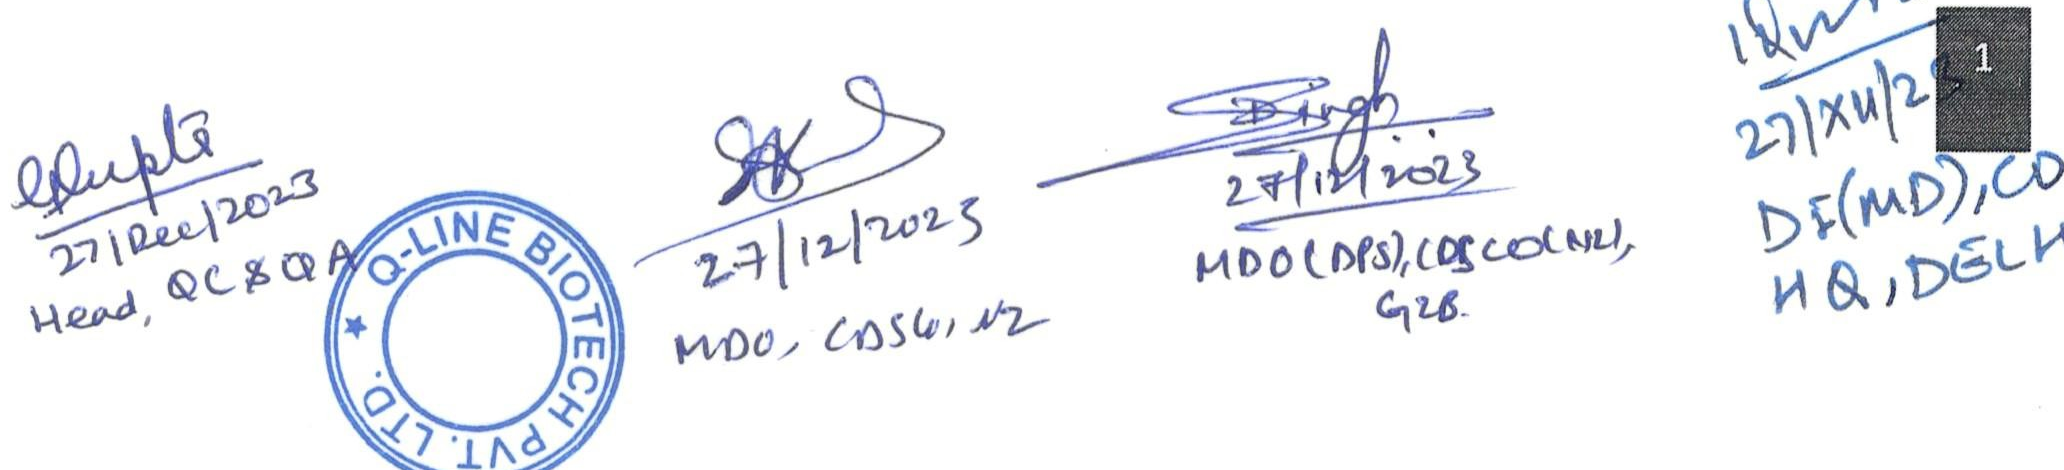 Gupta
27/Dec/2023
Head, QC & QA
Q-LINE BIOTECH PVT. LTD.
27/12/2023
MDO, CDSCO, NZ
Singh
27/12/2023
MDO(DPS), CDSCO(NZ),
GZB.
1
27/XII/23
DI(MD), CD
HQ, DELH